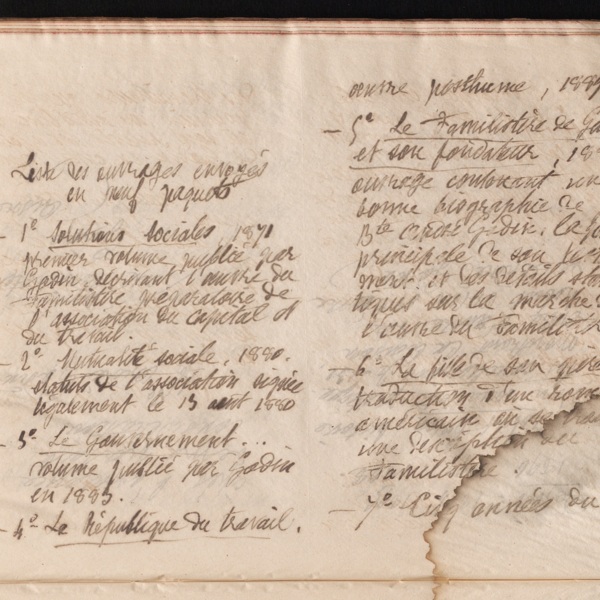 Liste des ouvrages envoyés
en neuf paquets
- 1º Solutions sociales 1871
premier volume publié par
Godin, décrivant l'œuvre du
Familistère, préparatoire de
l'association du capital et
du travail.
- 2º Mutualité sociale, 1880.
statuts de l'association signée
légalement le 13 août 1880
- 3º Le Gouvernement...
volume publié par Godin
en 1883.
- 4º La République du travail.
œuvre posthume, 1889
- 5º Le Familistère de Go
et son fondateur, 18
ouvrage contenant un
bonne biographie de
Bte André Godin. la
principale de son
et des détails
sur la marche
l'œuvre du Familist
- 6º La fille de son père
traduction d'un
américain
une description
Familistère.
- 7º Cinq années du